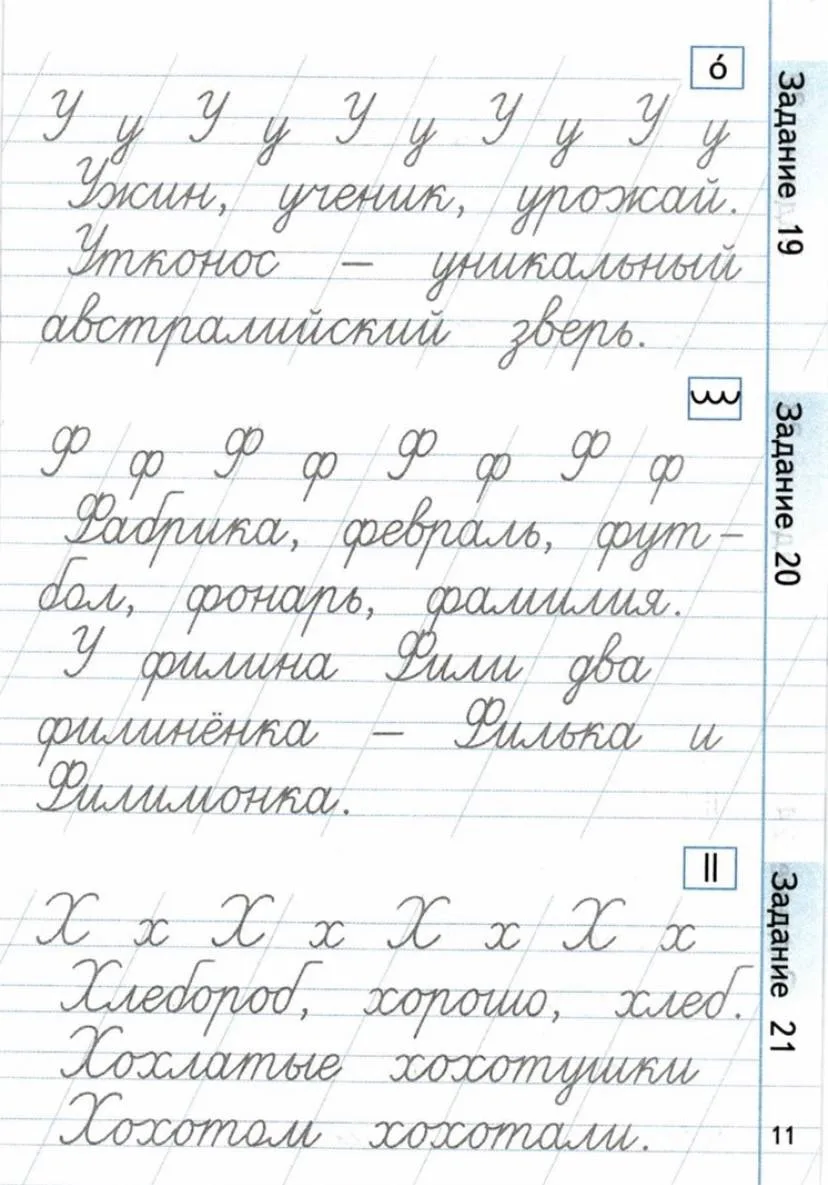 о́
Задание 19
У у У у У у У у У у
Ужин, ученик, урожай.
Утконос – уникальный
австралийский зверь.
Задание 20
Ф ф Ф ф Ф ф Ф ф
Фабрика, февраль, фут-
бол, фонарь, фамилия.
У филина Фили два
филинёнка – Филька и
Филимонка.
Задание 21
Х х Х х Х х Х х
Хлебороб, хорошо, хлеб.
Хохлатые хохотушки
Хохотом хохотали.
11